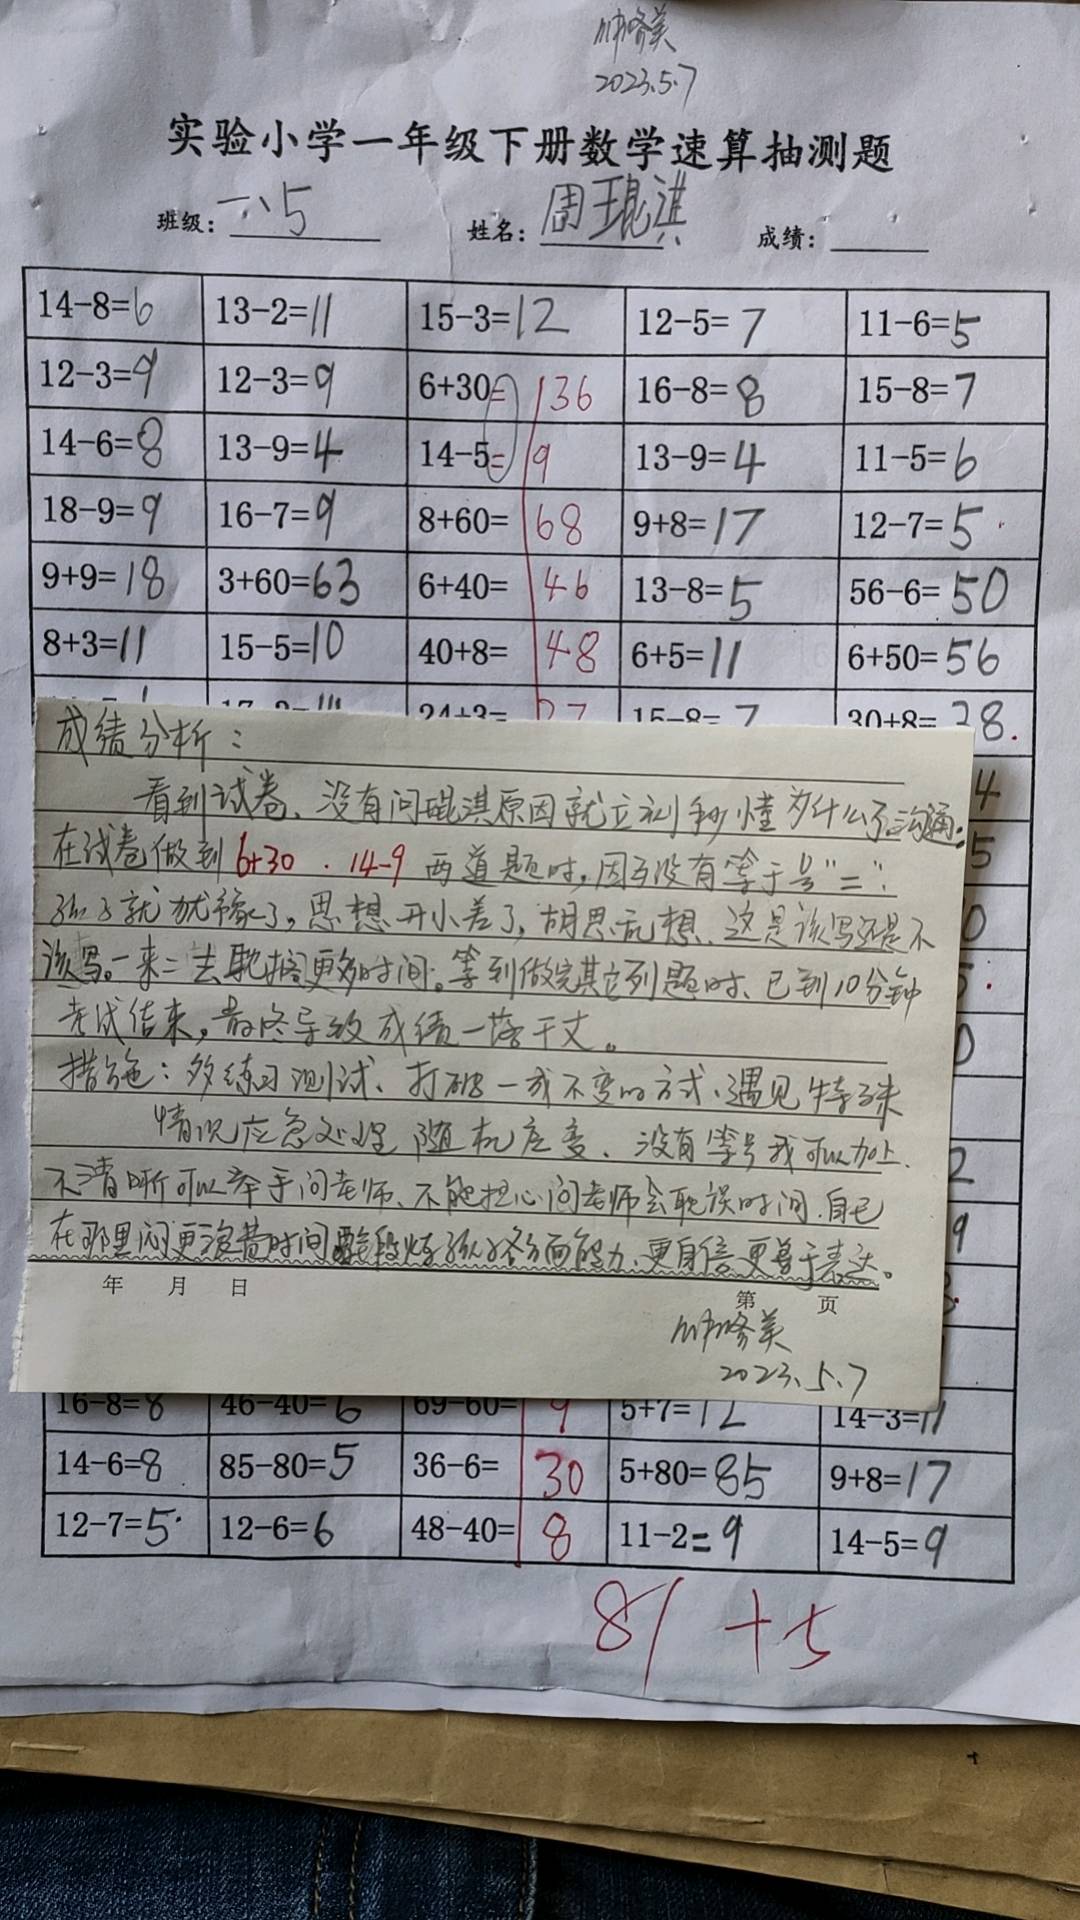 2023.5.7
实验小学一年级下册数学速算抽测题
班级: 一、5 姓名: 周琨淇 成绩:
14-8=6 13-2=11 15-3=12 12-5=7 11-6=5
12-3=9 12-3=9 6+30=36 16-8=8 15-8=7
14-6=8 13-9=4 14-5=9 13-9=4 11-5=6
18-9=9 16-7=9 8+60=68 9+8=17 12-7=5
9+9=18 3+60=63 6+40=46 13-8=5 56-6=50
8+3=11 15-5=10 40+8=48 6+5=11 6+50=56
24+3=27 15-8=7 30+8=38
成绩分析:
看到试卷、没有问琨淇原因就立刻秒懂为什么了沟通:
在试卷做到6+30 · 14-9两道题时,因为没有等于号"="
孩子就犹豫了,思想开小差了,胡思乱想、这是该写还是不
该写。一来二去耽搁更多时间。等到做完其它列题时、已到10分钟
考试结束,最终导致成绩一落千丈。
措施:多练习测试、打破一成不变的方式、遇见特殊
情况应急处理 随机应变、没有等号我可以加上、
不清晰可以举手问老师、不能担心问老师会耽误时间、自己
在那里闷更浪费时间 锻炼孩子各方面能力、更自信更善于表达。
年 月 日
第 页
2023.5.7
16-8=8 46-40=6 69-60=9 5+7=12 14-3=11
14-6=8 85-80=5 36-6=30 5+80=85 9+8=17
12-7=5 12-6=6 48-40=8 11-2=9 14-5=9
81 +5